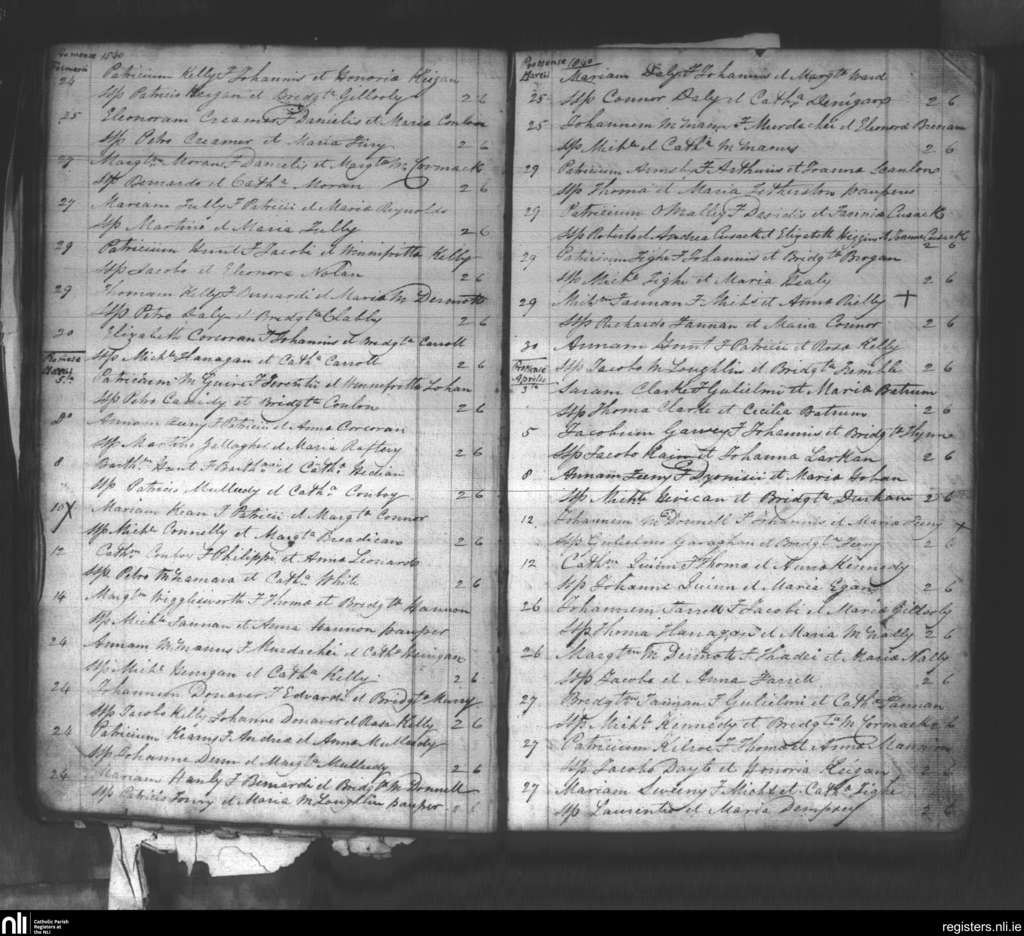 1840
24 Patricium Kelly F Johannis et Honoria Keigan
Sp Patricio Keegan et Bridgta Gillooly 2 6
25 Eleonoram Creamer F Danielis et Maria Conlon
Sp Petro Creamer et Maria Fury 2 6
27 Margtm Moran F Danielis et Margta McCormack
Sp Bernardo et Catha Moran 2 6
27 Mariam Lully F Patricii et Maria Reynolds
Sp Martino et Maria Lully 2 6
29 Patricium Hunt F Jacobi et Winnifritta Kelly
Sp Jacobo et Eleonora Nolan 2 6
29 Thomam Kelly F Bernardi et Maria McDermott
Sp Petro Daly et Bridgta Clabby 2 6
20 Elizabeth Corcoran F Johannis et Bridgta Carroll
Sp Michle Flanagan et Catha Carroll 2 6
5th Patricium McGuire F Terentii et Winnifritta Lohan
Sp Petro Cassidy et Bridgta Conlon 2 6
8 Annam Feeny F Patricii et Anna Corcoran
Sp Martino Gallagher et Maria Raftery 2 6
8 Barthm Hunt F Barthmei et Catha Hedian
Sp Patricio Mulledy et Catha Conboy 2 6
10 X Mariam Kean F Patricii et Margta Connor
Sp Michle Connelly et Margta Breadican 2 6
12 Cathm Conboy F Philippi et Anna Leonard
Sp Petro McNamara et Catha White 2 6
14 Margtm Wigglesworth F Thoma et Bridgta Hannon
Sp Michle Fannan et Anna Hannon pauper
24 Annam McManus F Murdachei et Catha Geinigan
Sp Michle Genigan et Catha Kelly 2 6
24 Johannem Donaver F Edvardi et Bridgta Murry
Sp Jacobo Kelly Johanne Donaver et Rosa Kelly 2 6
24 Patricium Kearny F Andrea et Anna Mulleady
Sp Johanne Dunn et Margta Mulledy 2 6
24 Mariam Hanly F Bernardi et Bridgta McDonnell
Sp Patricio Lowry et Maria McLoughlin pauper
1840
Martii Mariam Daly F Johannis et Margta Ward
25 Sp Connor Daly et Catha Denigan 2 6
25 Johannem McManus F Murdachei et Eleonora Brennan
Sp Michle et Catha McManus 2 6
29 Patricium Armsby F Arthuris et Joanna Scanlon
Sp Thoma et Maria Fetherston pauperes
29 Patricium O'Malley F Davidis et Fannia Cusack
Sp Roberto et Andrea Cusack et Elizabeth Higgins et Joanna Cusack 2 6
29 Patricium Tighe F Johannis et Bridgta Brogan
Sp Michle Tighe et Maria Healy 2 6
29 Michm Fannan F Michs et Anna Reilly +
Sp Richardo Fannan et Maria Connor 2 6
30 Annam Hunt F Patricii et Rosa Kelly
Sp Jacobo McLoughlin et Bridgta 2 6
Aprilis
5th Saram Clarke F Gulielmi et Maria Batrum
Sp Thoma Clarke et Cecilia Batrum 2 6
5 Jacobum Garvey F Johannis et Bridgta Flynn
Sp Jacobo et Johanna Larkan 2 6
8 Annam Feeny F Dyonisii et Maria Lohan
Sp Michle et Bridgta Durkan 2 6
12 Johannem McDonnell F Johannis et Maria Feeny +
Sp Gulielmo Garaghan et Bridgta Feeny 2 6
12 Cathm Quinn F Thoma et Anna Kennedy
Sp Johanne Quinn et Maria Egan 2 6
26 Johannem Farrell F Jacobi et Maria Gillooly
Sp Thoma Flanagan et Maria McNally 2 6
26 Margtm McDermott F Thadei et Maria Nally
Sp Jacobo et Anna Farrell 2 6
27 Bridgtm Fannan F Gulielmi et Catha Fannan
Sp Michle Kennedy et Bridgta McCormack 2 6
27 Patricium Kilroe F Thoma et Anna Mannion
Sp Jacobo Doyle et Honoria Keigan 2 6
27 Mariam Sweeny F Michs et Catha Tighe
Sp Laurentio et Maria Dempsey 2 6
nli
Catholic Parish
Registers at
the NLI
registers.nli.ie